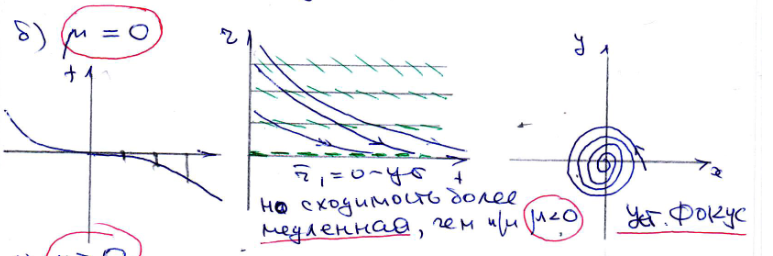 б) μ = 0
f
r
y
t
x
r₁ = 0 – ус
но сходимость более
медленная, чем при μ<0
уст. Фокус